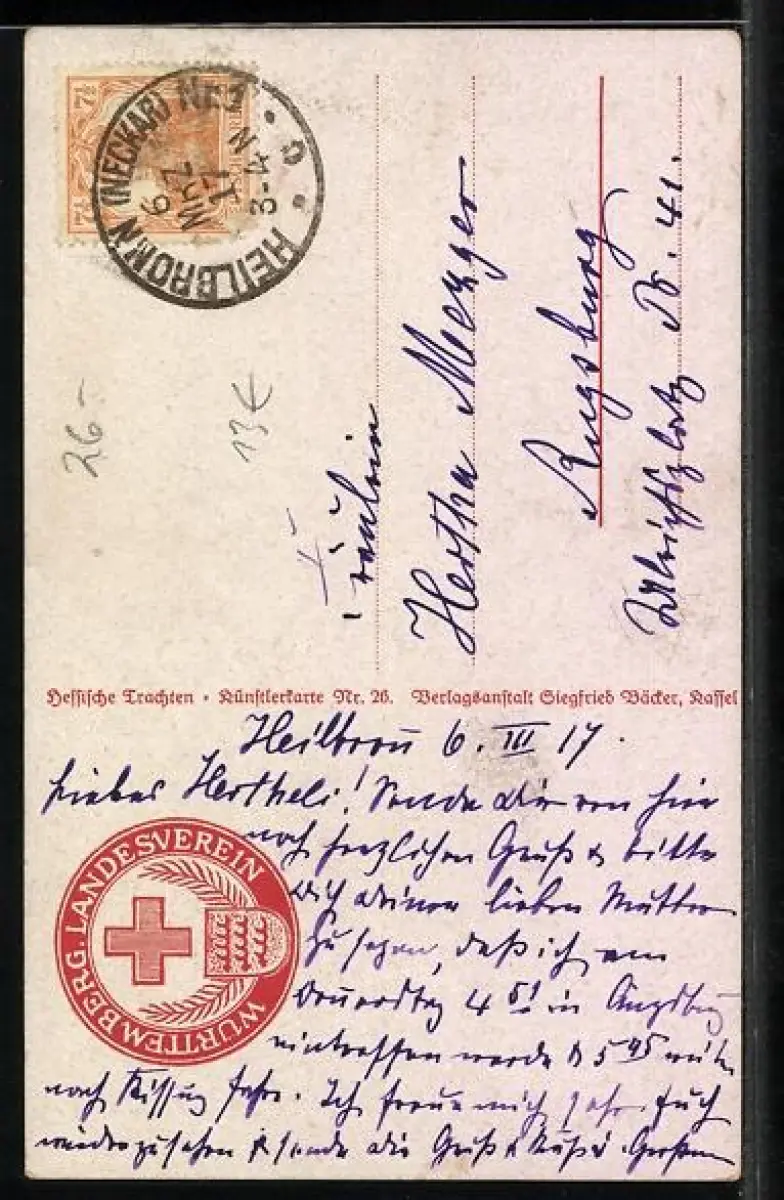 7½ 7½
HEILBRONN (NECKAR) Nr 1
6
MRZ
17
3-4 N
26-
13€
Fräulein
Hertha Mezger
Augsburg
Ulrichsplatz Nr. 41.
Hessische Trachten • Künstlerkarte Nr. 26. Verlagsanstalt Siegfried Bäcker, Kassel
Heilbronn 6. III 17.
Liebes Hertheli! Sende Dir von hier
noch herzlichen Gruß & bitte
Dich Deiner lieben Mutter
zu sagen, daß ich am
Donnerstag 4 51 in Augsburg
eintreffen werde & 5 45
nach fahre. Ich freue mich sehr Euch
wiederzusehen & sende Dir Gruß & Kuß
WÜRTTEMBERG. LANDESVEREIN